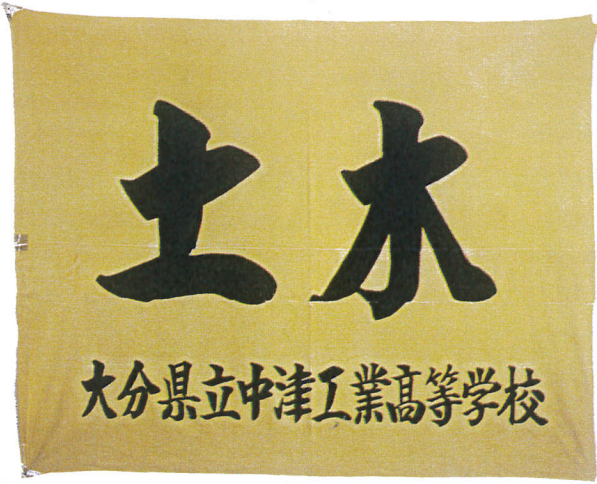 土木
大分県立中津工業高等学校